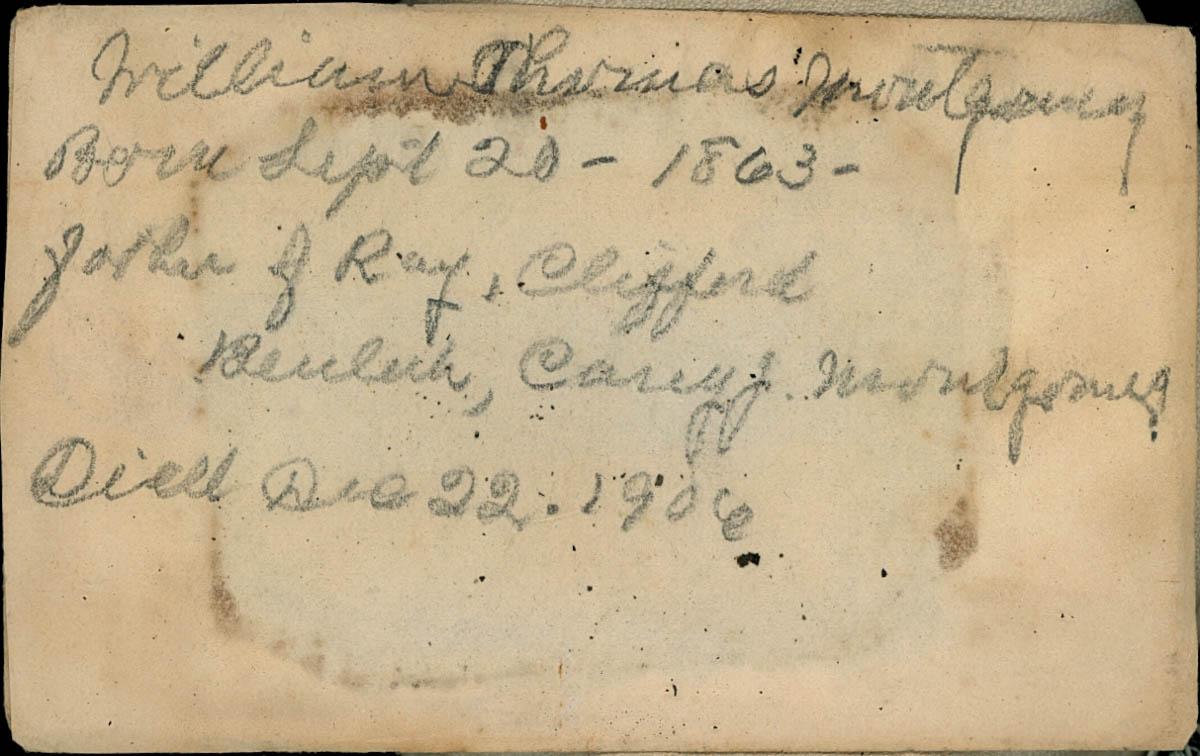 William Thomas Montgomery
Born Sept 20 - 1863 -
Father of Ray, Clifford
Beulah, Carey J. Montgomery
Died Dec 22. 1906